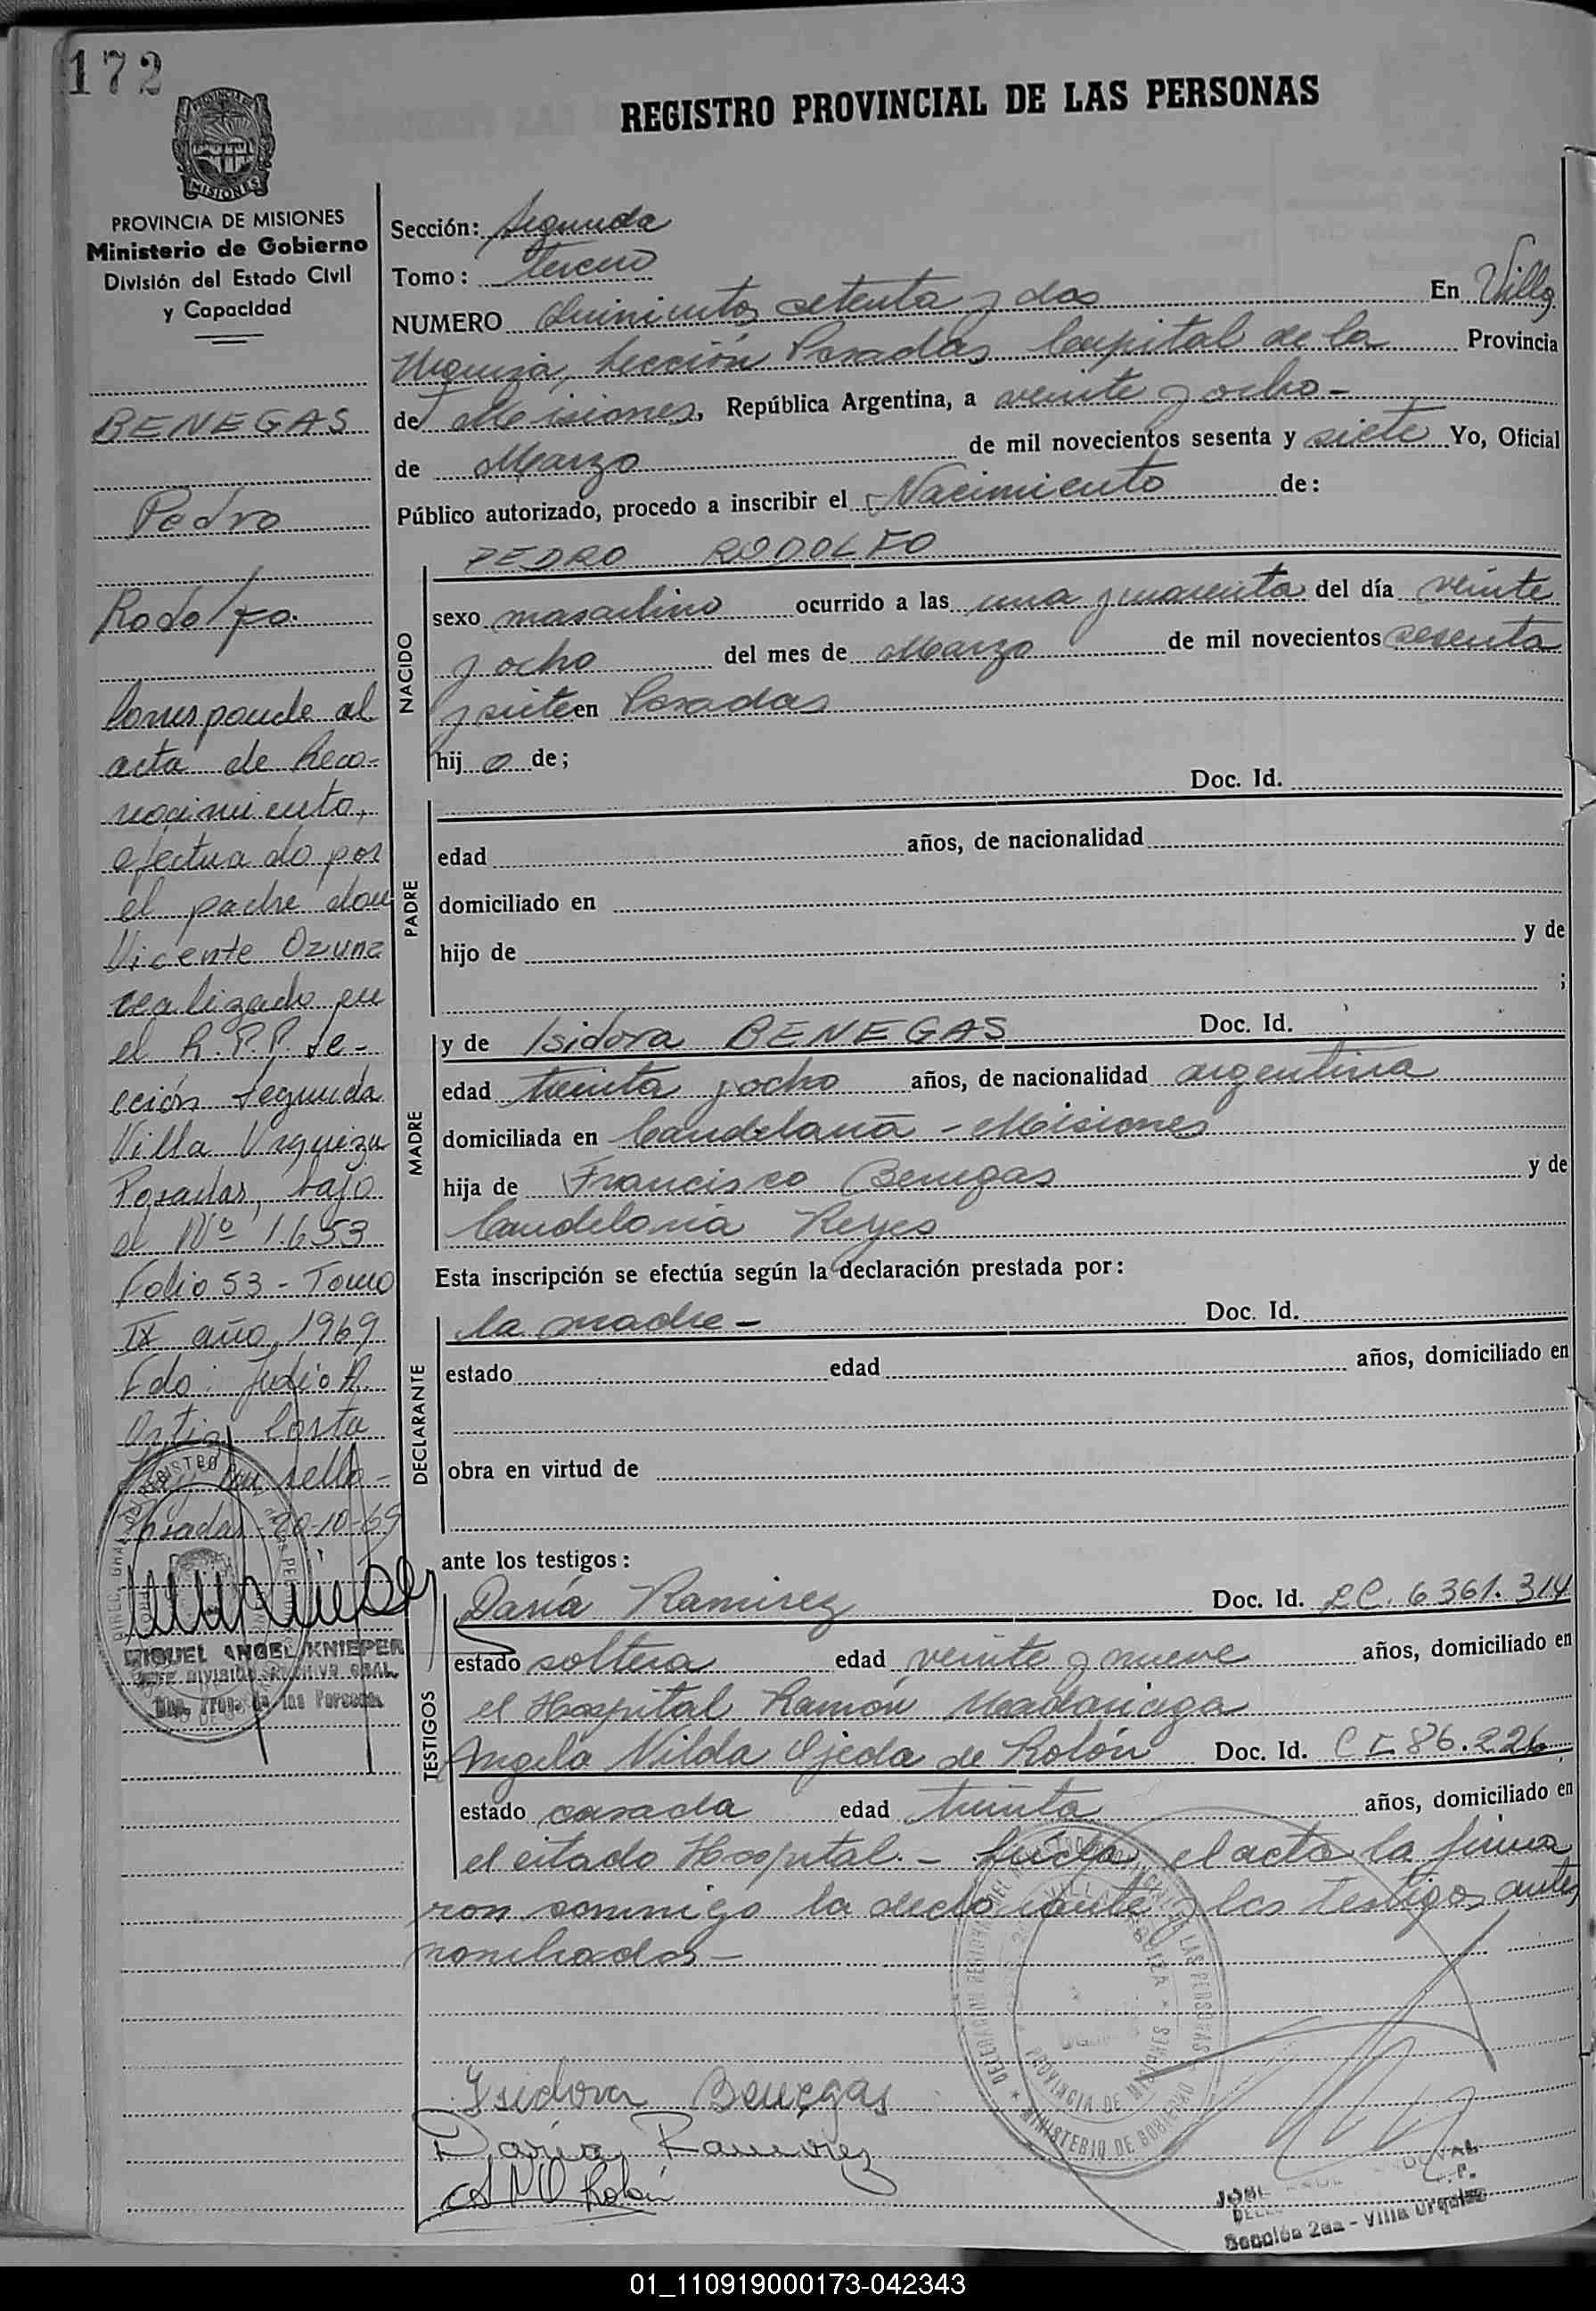 172
REGISTRO PROVINCIAL DE LAS PERSONAS
PROVINCIA DE MISIONES
MISIONES
PROVINCIA DE MISIONES
Ministerio de Gobierno
División del Estado Civil
y Capacidad
BENEGAS
Pedro
Rodolfo.
Corresponde al
acta de Reco-
nocimiento,
efectuado por
el padre don
Vicente Ozuna
realizado en
el R.P.P. Se-
cción Segunda
Villa Urquiza
Posadas, bajo
el Nº 1.653
Folio 53 - Tomo
IX año 1969
Fdo: Julio A.
Ortiz Costa
sello -
Posadas 20-10-69
MIGUEL ANGEL KNIEPER
JEFE DIVISION ARCHIVO GRAL.
de las Personas
Sección: Segunda
Tomo: Tercero
NUMERO Quinientos setenta y dos En Villa
Urquiza, Sección Posadas Capital de la Provincia
de Misiones, República Argentina, a veinte y ocho -
de Marzo de mil novecientos sesenta y siete Yo, Oficial
Público autorizado, procedo a inscribir el Nacimiento de:
NACIDO
PEDRO RODOLFO
sexo masculino ocurrido a las una y cuarenta del día veinte
y ocho del mes de Marzo de mil novecientos sesenta
y siete en Posadas
hij o de;
PADRE
Doc. Id.
edad años, de nacionalidad
domiciliado en
hijo de y de
;
MADRE
y de Isidora BENEGAS Doc. Id.
edad treinta y ocho años, de nacionalidad argentina
domiciliada en Candelaria - Misiones
hija de Francisco Benegas y de
Candeloria Reyes
Esta inscripción se efectúa según la declaración prestada por:
DECLARANTE
la madre - Doc. Id.
estado edad años, domiciliado en
obra en virtud de
ante los testigos:
TESTIGOS
Daría Ramirez Doc. Id. LC. 6361.314
estado soltera edad veinte y nueve años, domiciliado en
el Hospital Ramón Madariaga
Angela Nilda Ojeda de Rolón Doc. Id. C I 86.226
estado casada edad treinta años, domiciliado en
el citado Hospital. - Leida el acta la firma
ron conmigo la declarante y los testigos antes
nombrados -
PROVINCIA DE MISIONES
MINISTERIO DE GOBIERNO
Isidora Benegas
Daria Ramirez
A N O Rolón
Sección 2da - Villa Urquiza
01_110919000173-042343